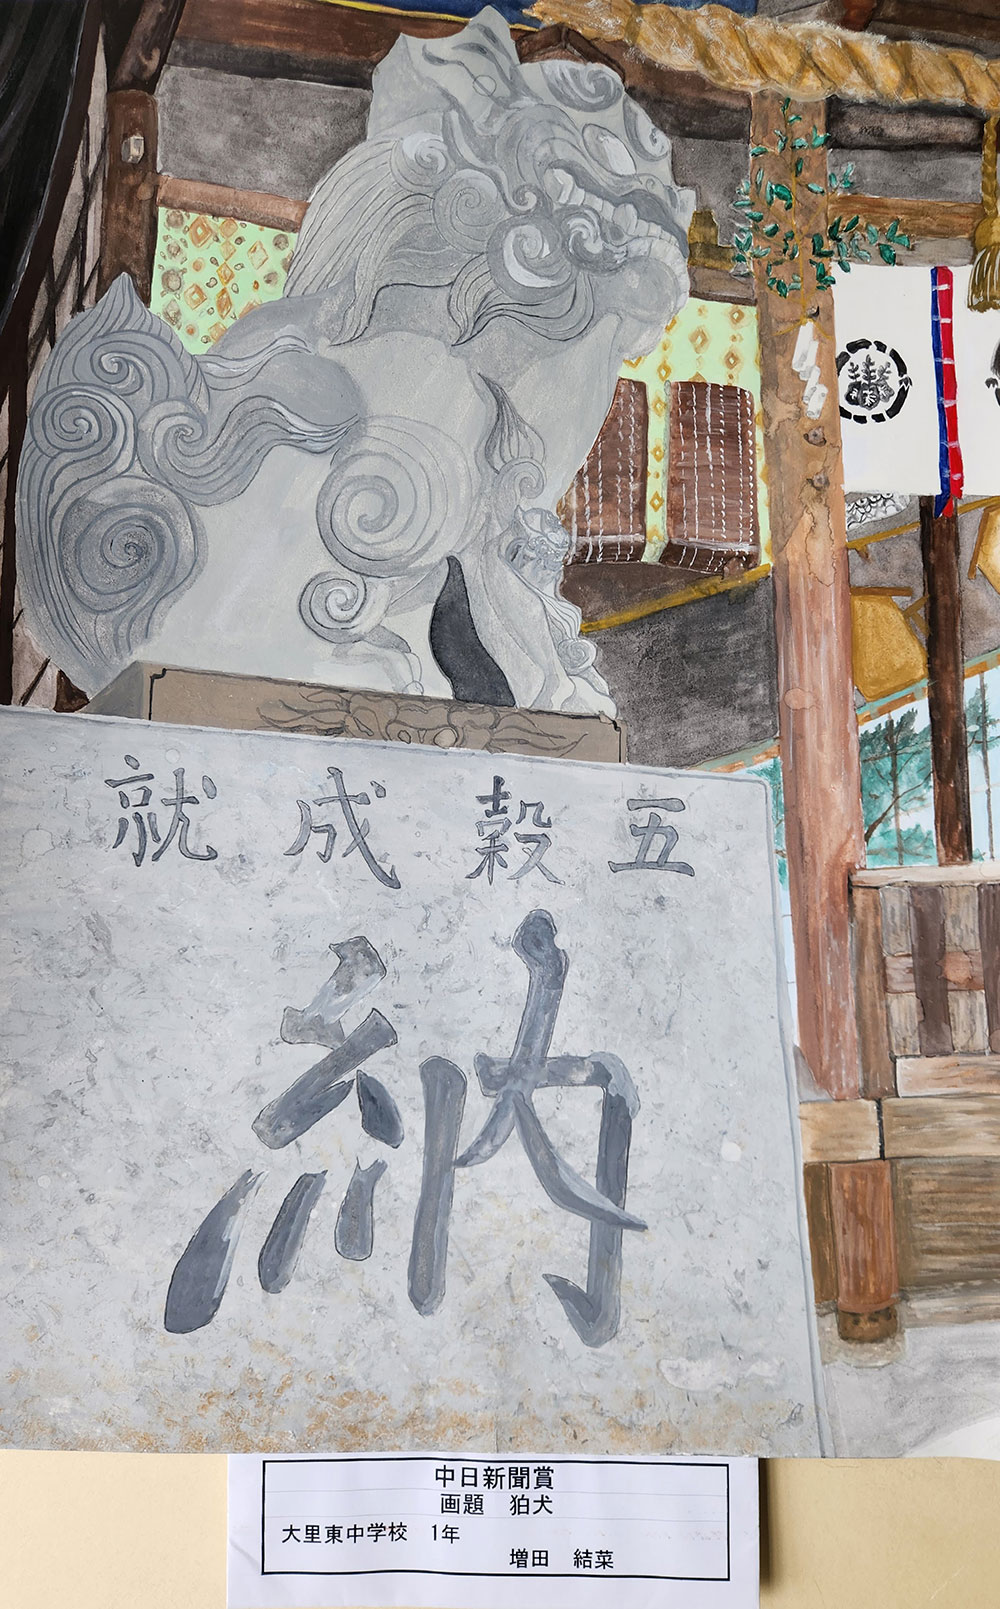 五穀成就
納
中日新聞賞
画題　狛犬
大里東中学校　1年
増田　結菜